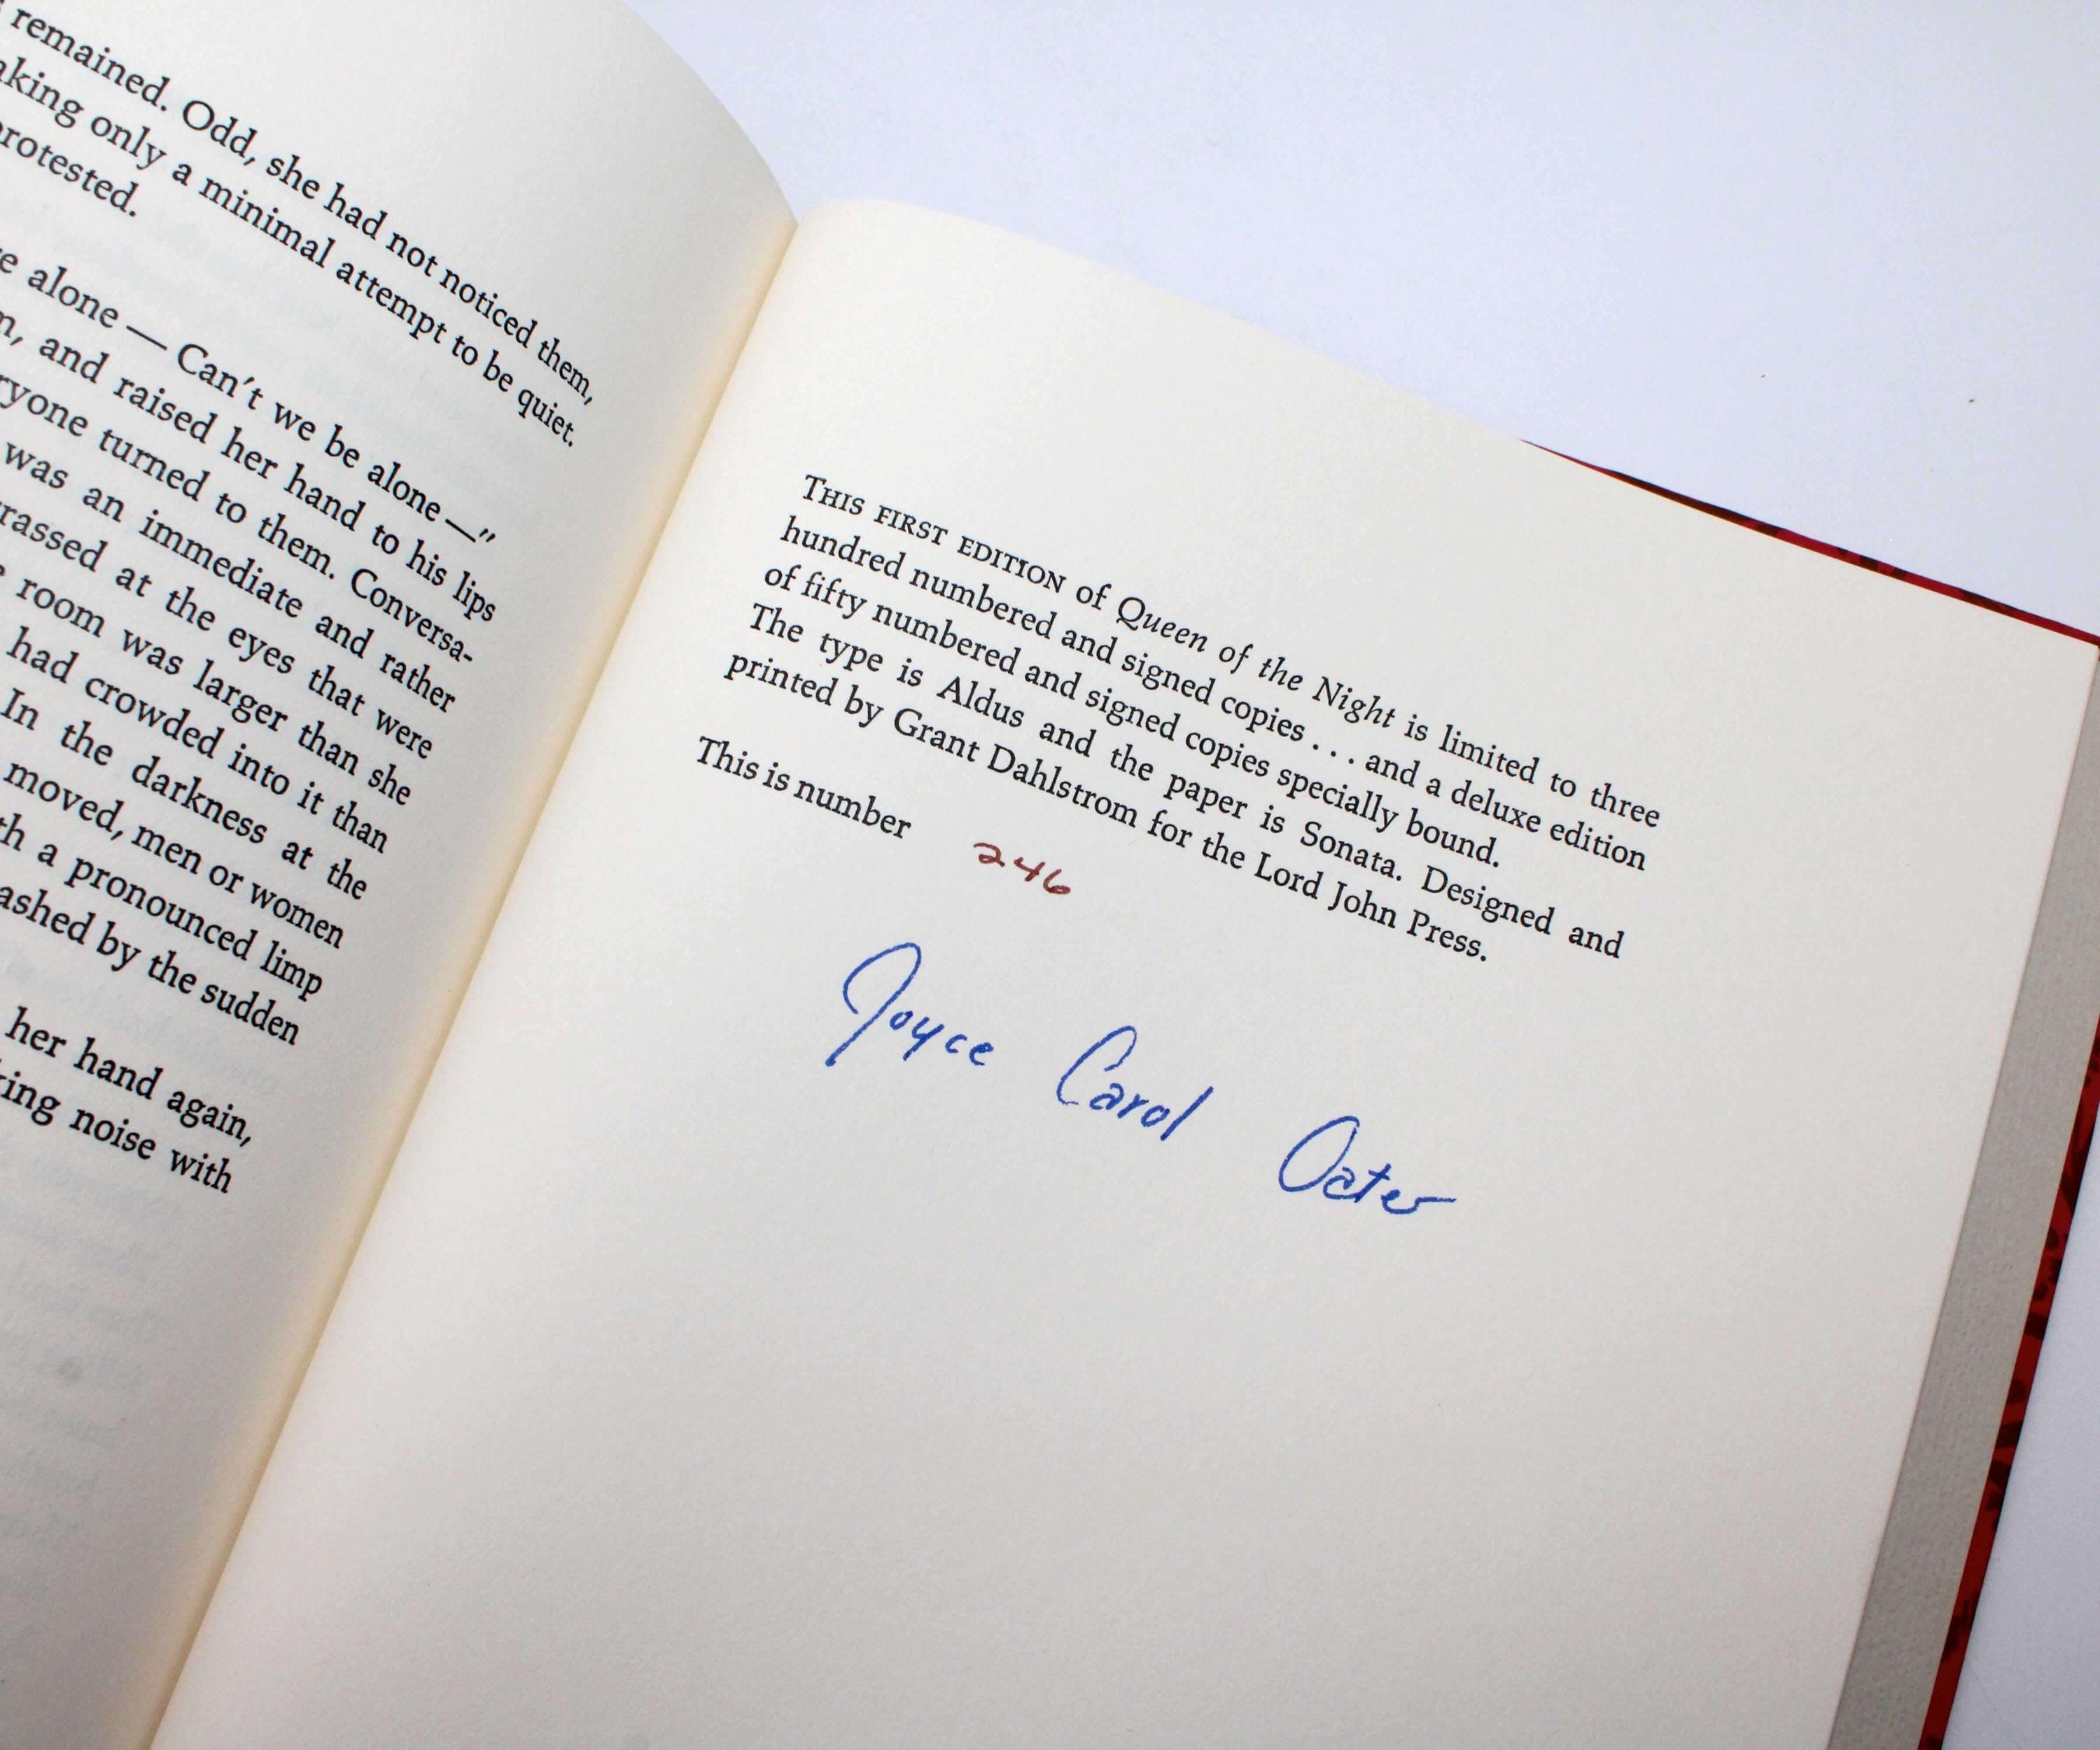 remained. Odd, she had not noticed them,
only a minimal attempt to be quiet.
alone — Can't we be alone —"
and raised her hand to his lips
turned to them. Conversa-
was an immediate and rather
at the eyes that were
room was larger than she
had crowded into it than
In the darkness at the
moved, men or women
a pronounced limp
by the sudden
her hand again,
noise with
THIS FIRST EDITION of Queen of the Night is limited to three
hundred numbered and signed copies . . . and a deluxe edition
of fifty numbered and signed copies specially bound.
The type is Aldus and the paper is Sonata. Designed and
printed by Grant Dahlstrom for the Lord John Press.
This is number 246
Joyce Carol Oates